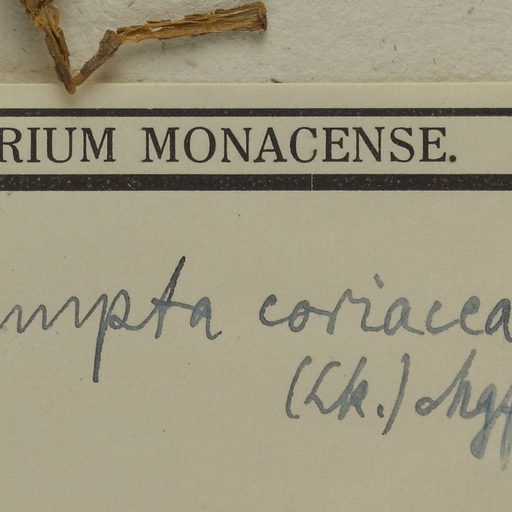 RIUM MONACENSE.
umpta coriacea
(Lk.)